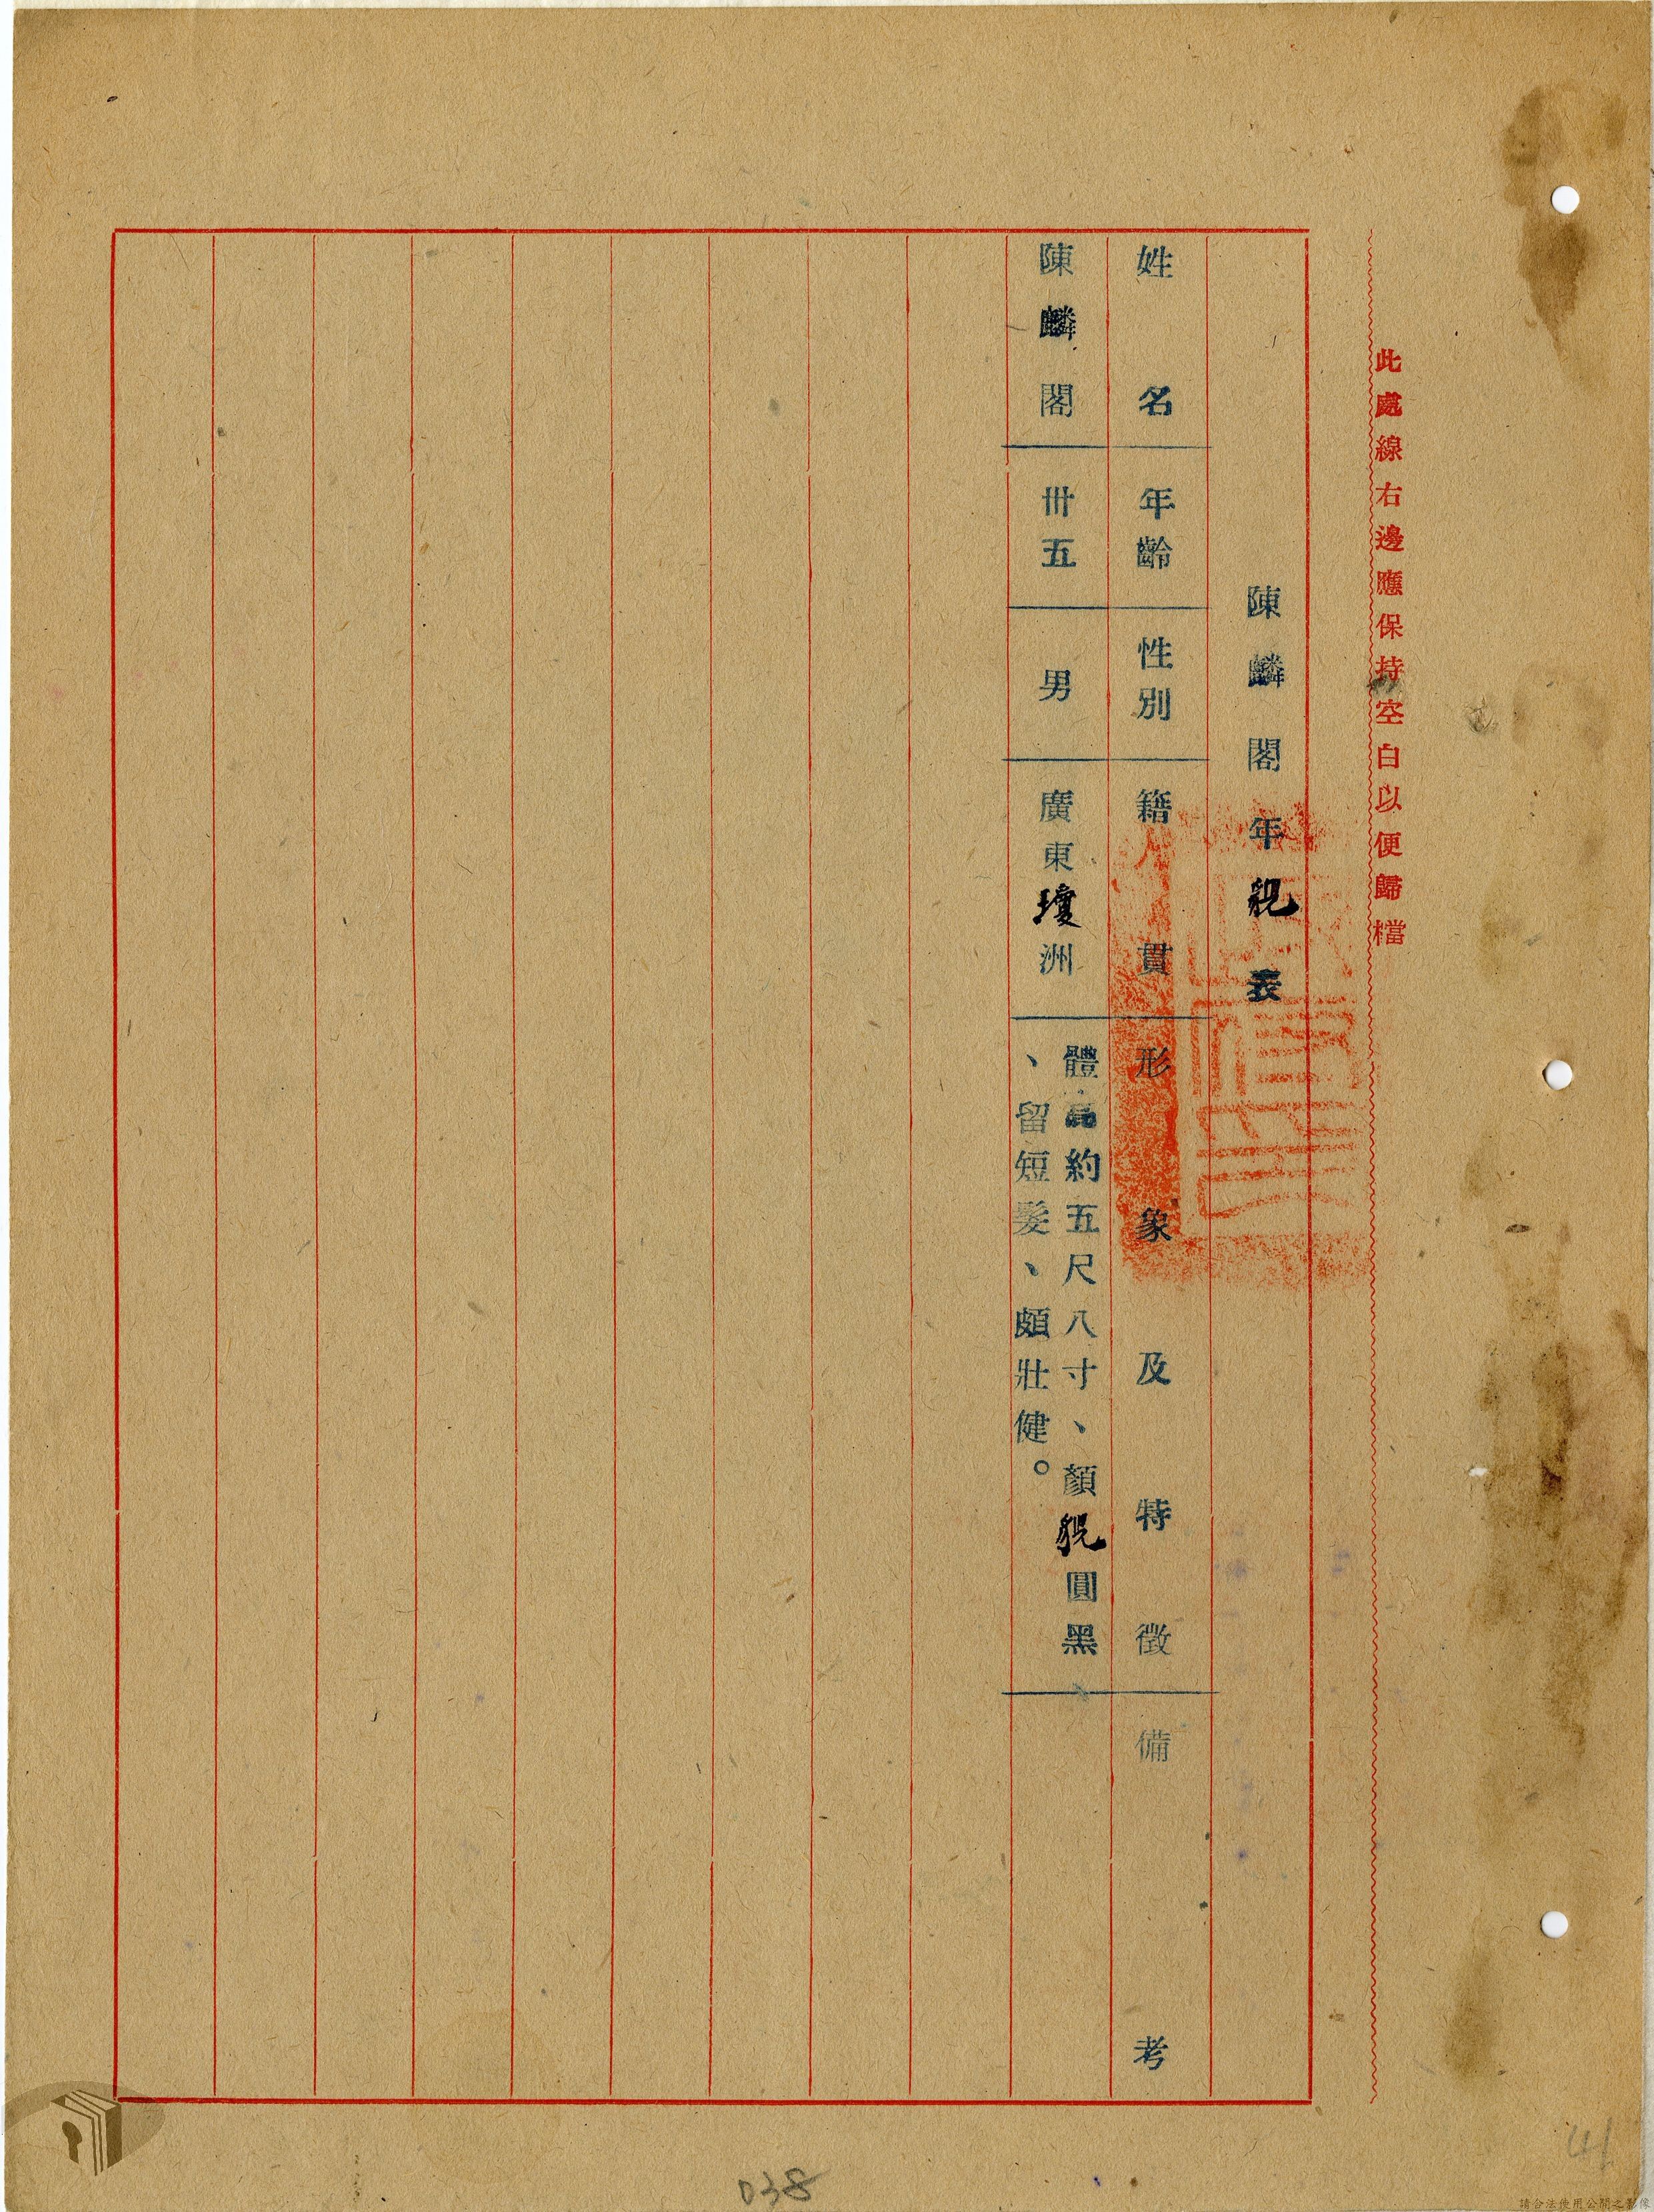 此處線右邊應保持空白以便歸檔
陳麟閣年貌表
姓名 年齡 性別 籍貫 形象及特徵 備考
陳麟閣 卅五 男 廣東瓊洲 體高約五尺八寸、顏貌圓黑
、留短髮、頗壯健。
038
41
請合法使用公開之影像